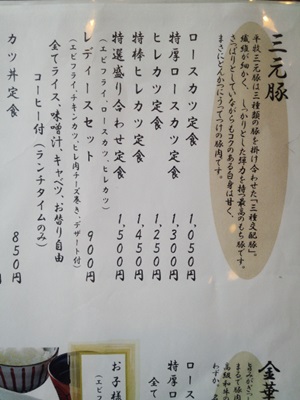 三元豚
平牧三元豚は三種類の豚を掛け合わせた「三種交配豚」。
繊維が細かく、しっかりとした弾力を持つ最高のもち豚です。
さっぱりとしていながらもコクのある白身は甘く、
まさにとんかつにうってつけの豚肉です。
ロースカツ定食 1,050円
特厚ロースカツ定食 1,300円
ヒレカツ定食 1,250円
特棒ヒレカツ定食 1,450円
特選盛り合わせ定食 1,500円
(エビフライ、ロースカツ、ヒレカツ)
レディースセット 900円
(エビフライ、チキンカツ、ヒレ肉チーズ巻き、デザート付)
全てライス、味噌汁、キャベツ、お替り自由
コーヒー付(ランチタイムのみ)
カツ丼定食 850円
金華
ロース
特厚ロ
全て
お子様
(エビフ